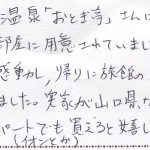 温泉「おとぎ亭」さんに
部屋に用意されていまし
感動し、帰りに旅館の
ました。実家が山口県な
パートでも買えると嬉し
(イオンとか)